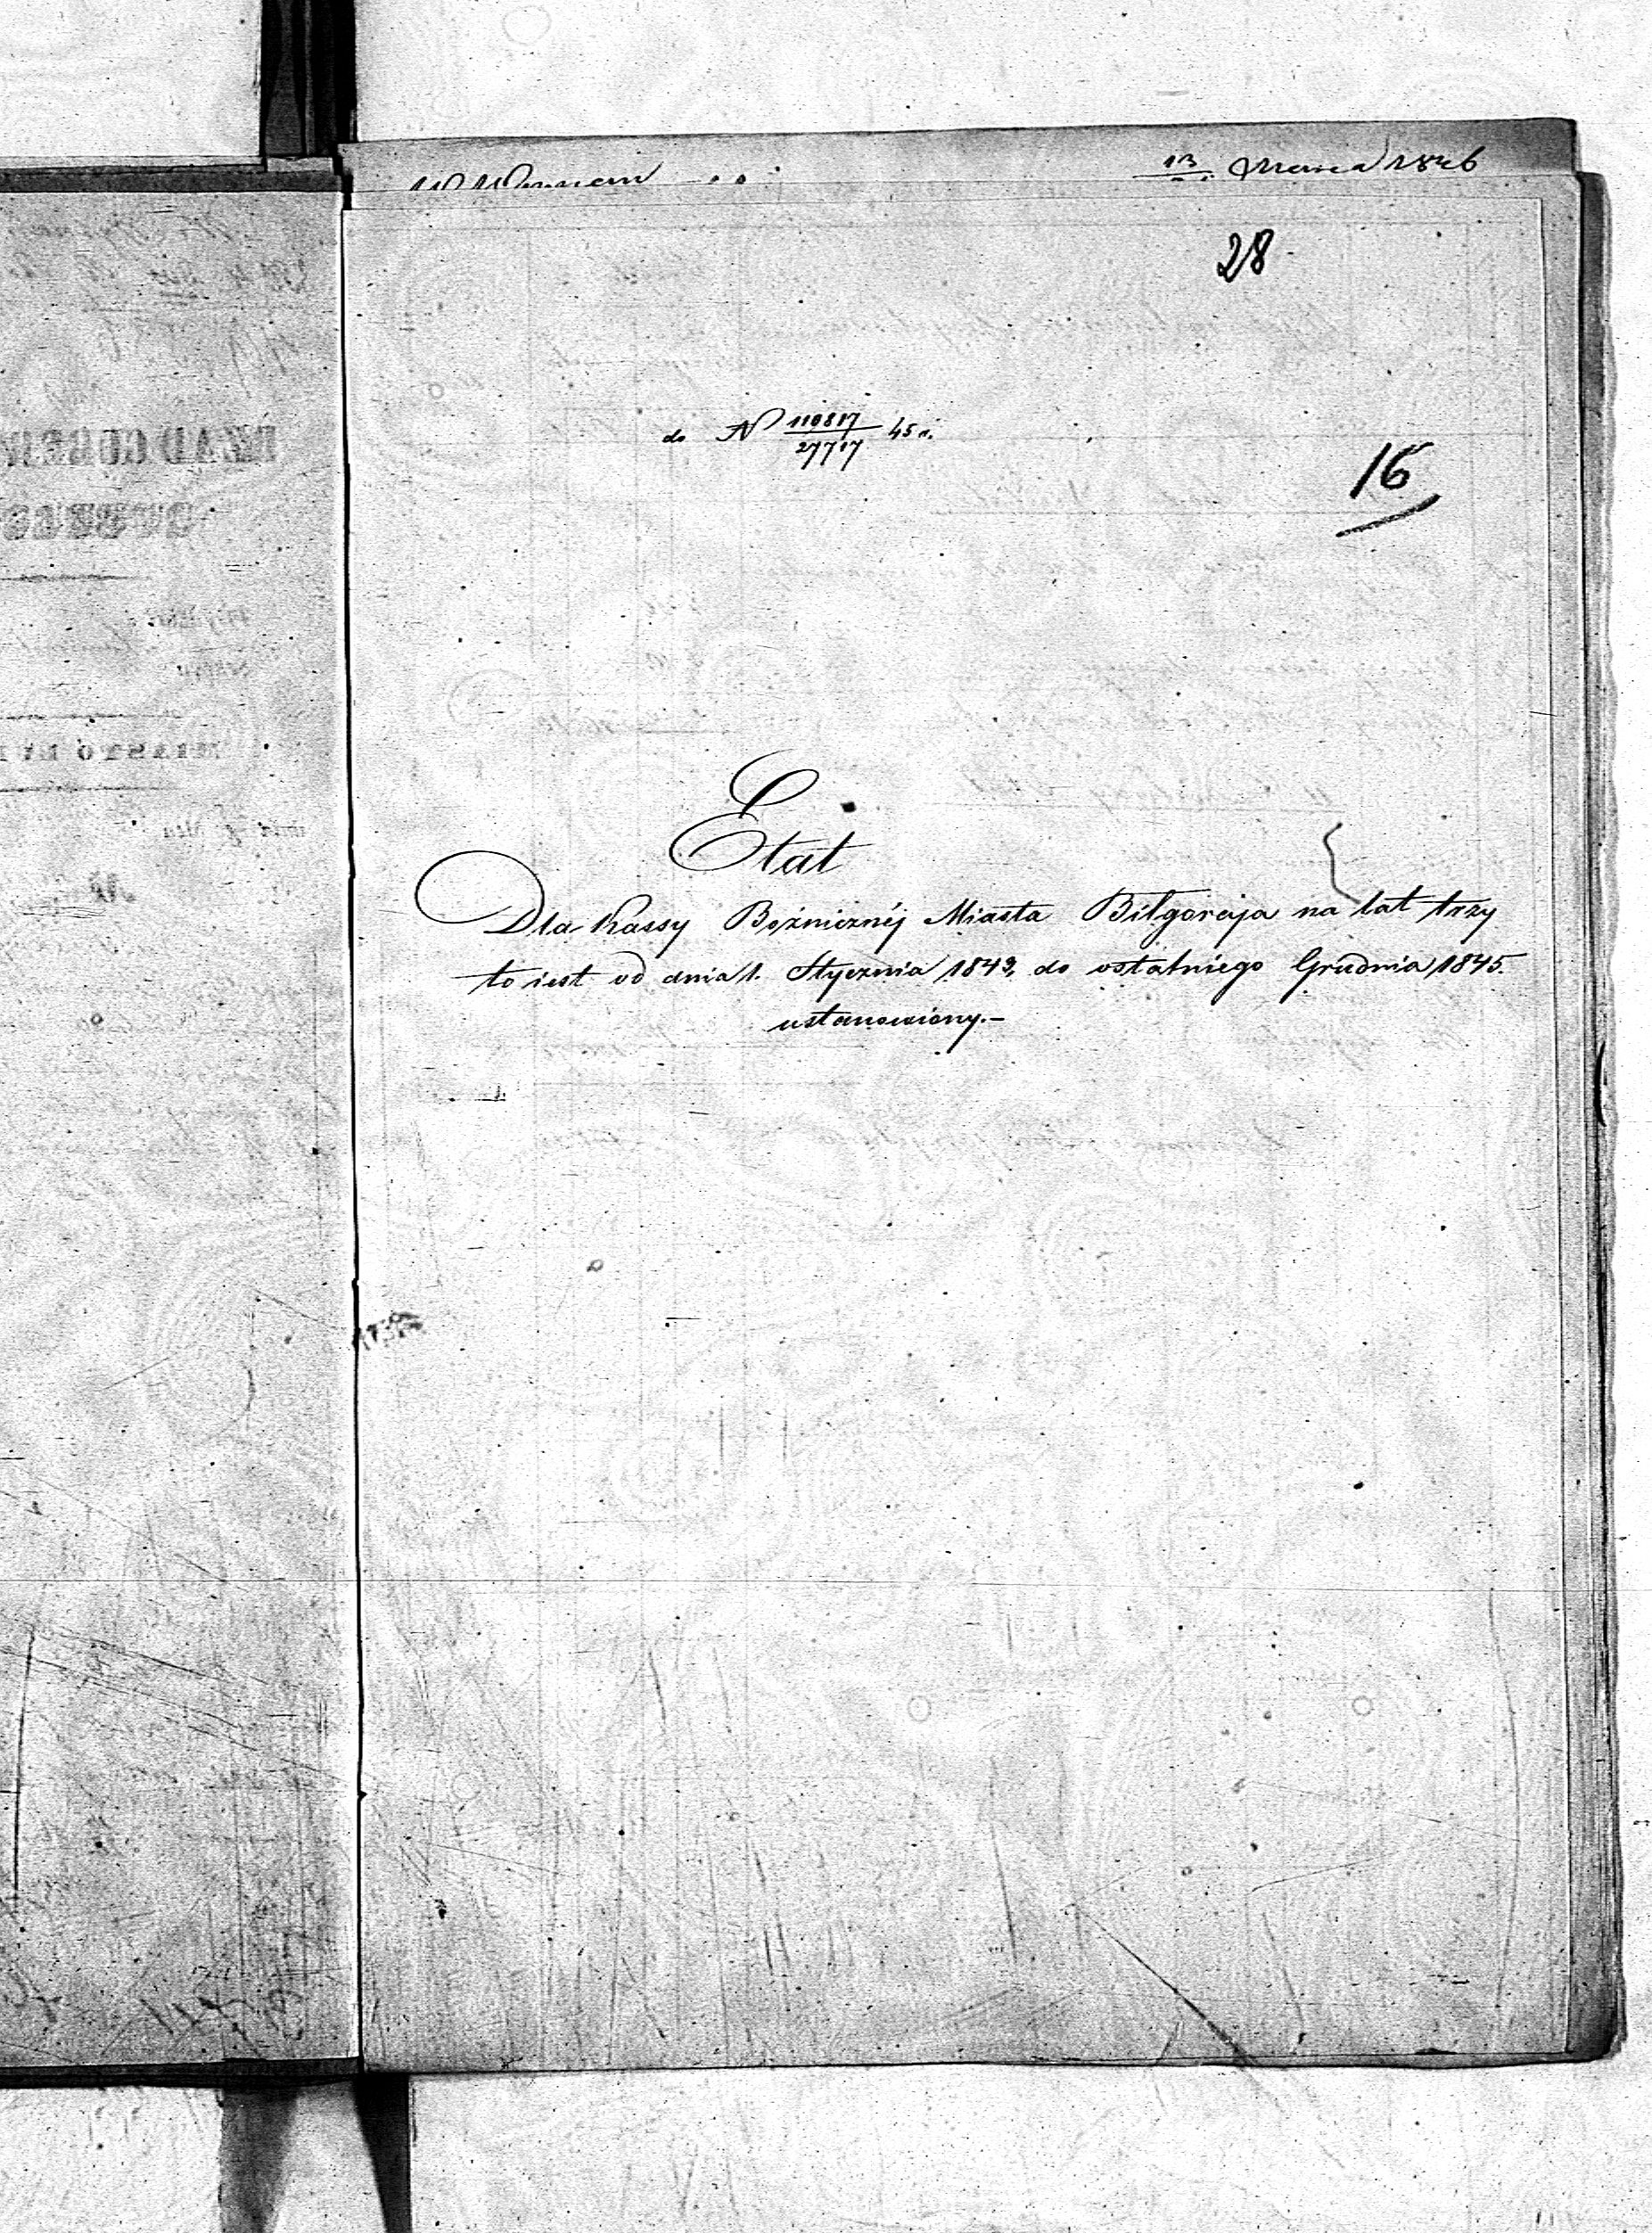 13. Marca 1846
28
do N 110817/27717 45 r.
16
Etat
Dla Kassy Bożnicznéj Miasta Biłgoraja na lat trzy
to iest od dnia 1. Stycznia 1843, do ostatniego Grudnia 1845.
ustanowiony.-